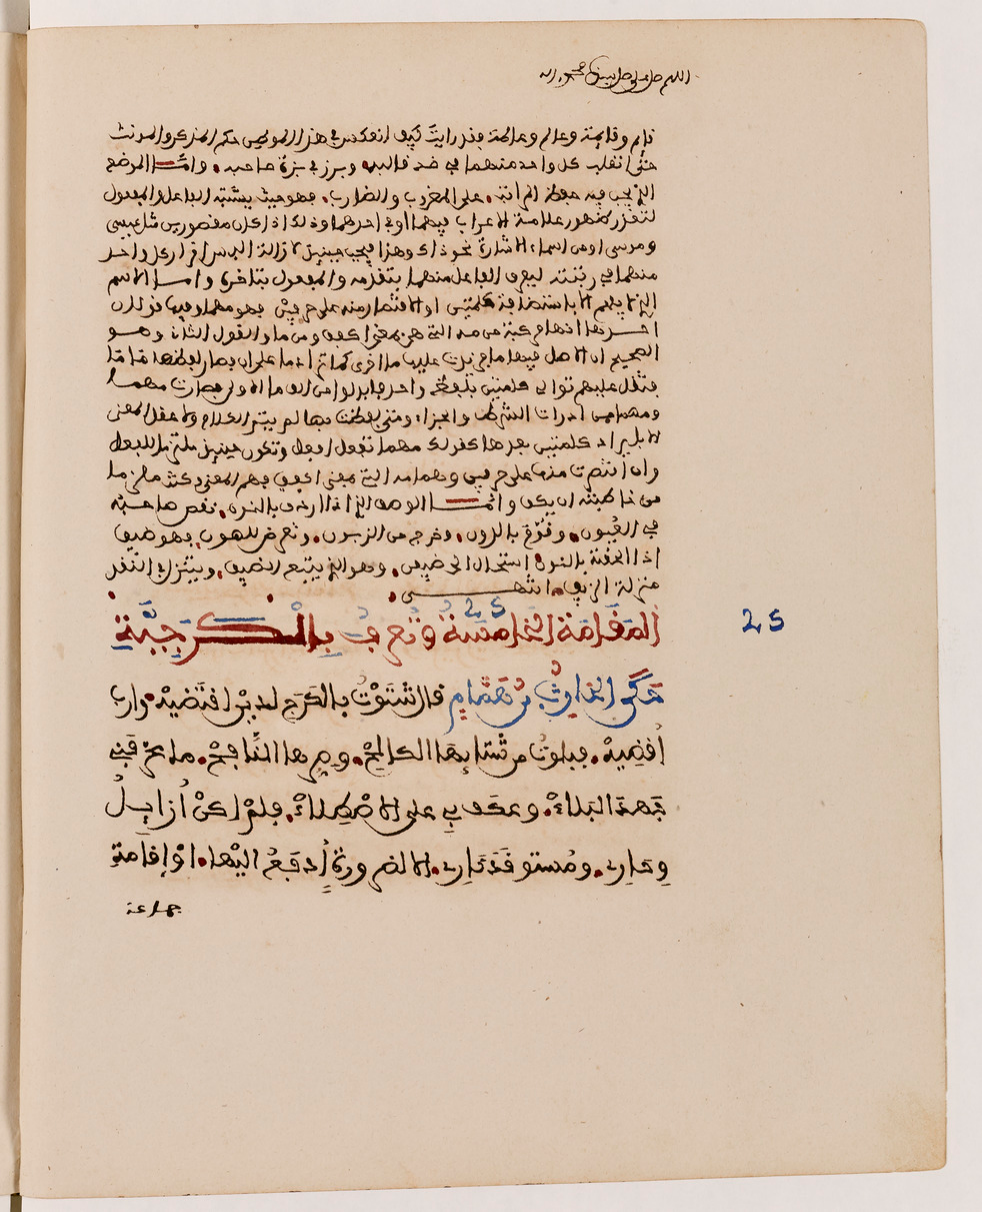 اللهم صل على سيدنا محمد وآله
قايم وقايمة وعالم وعالمة فقد رايت كيف انعكس في هذا الموطن حكم المذكر والمونث
حتى انقلب كل واحد منهما في ضد قالبه وبرز في بزة صاحبه. واما الموضع
الذي يجب فيه حفظ المراتب. على المضروب والضارب. فهو حيث يشتبه الفاعل بالمفعول
لتعذر ظهور علامة الاعراب فيهما او في احدهما وذلك اذا كان مقصورين مثل عيسى
وموسى او من اسماء الاشارة نحو ذاك وهذا فيجب حينيذ لازالة اللبس اقرار كل واحد
منهما في رتبته ليعرف الفاعل منهما بتقدمه والمفعول بتاخره واما الاسم
الذي لا يفهم الا باستضافة كلمتين او الاقتصار منه على حرفين فهو مهما وفيها قولان
احدهما انها مركبة من مه التي هي بمعنى اكفف ومن ما والقول الثاني وهو
الصحيح ان الاصل فيها ما فزيدت عليها ما اخرى كما تزاد ما على ان فصار لفظها ما ما
فثقل عليهم توالي كلمتين بلفظ واحد فابدلوا من الف ما الاولى هاء فصارت مهما
ومهما من ادوات الشرط والجزاء ومتى لفظت بها لم يتم الكلام ولا عقل المعنى
الا بايراد كلمتين بعدها كقولك مهما تفعل افعل وتكون حينيذ ملتزما للفعل
وان اقتصرت منها على حرفين وهما مه التي بمعنى اكفف فهم المعنى وكنت ملزما
من خاطبته ان يكف واما الوصف الذي اذا اردف بالنون. نقص صاحبه
في العيون. وقوم بالدون. وخرج من الزبون. وتعرض للهون. فهو ضيف
اذا لحقته النون استحال الى ضيفن. وهو الذي يتبع الضيف. ويتنزل في النقد
منزلة الزيف. انتهـــى
25
المقامة الخامسة وتعرف بالكرجية
25
حكى الحارث بن همام قال شتوت بالكرج لدين اقتضيه. وارب
اقضيه. فبلوت من شتايها الكالح. وصرها النافح. ما عرفني
جهد البلاء. وعكف بي على الاصطلاء. فلم اكن ازايل
وجاري. ومستوقد ناري. الا لضرورة ادفع اليها. او اقامة
جماعة